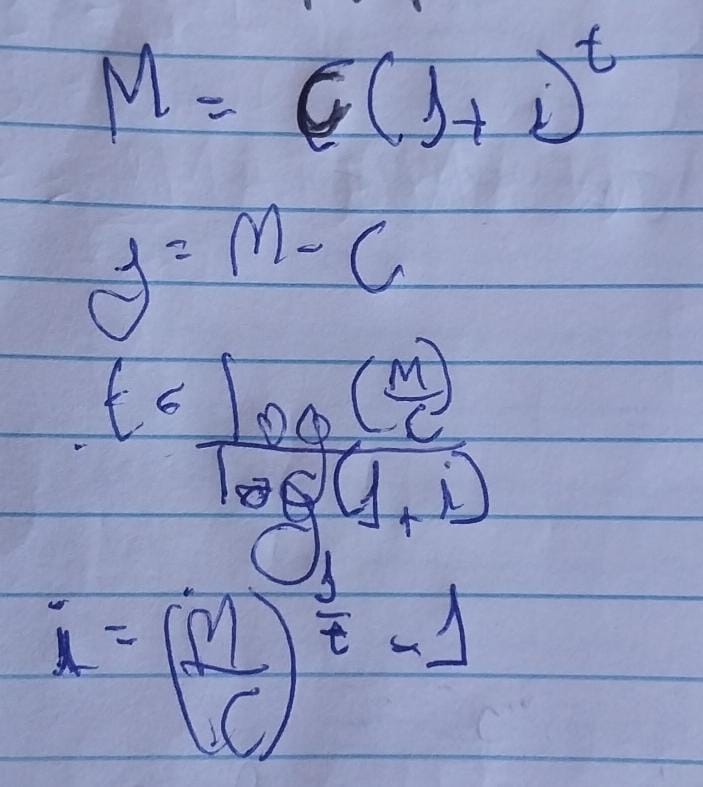 M = C(1+i)^t
J = M - C
t = log(M/C) / log(1+i)
i = (M/C)^(1/t) - 1